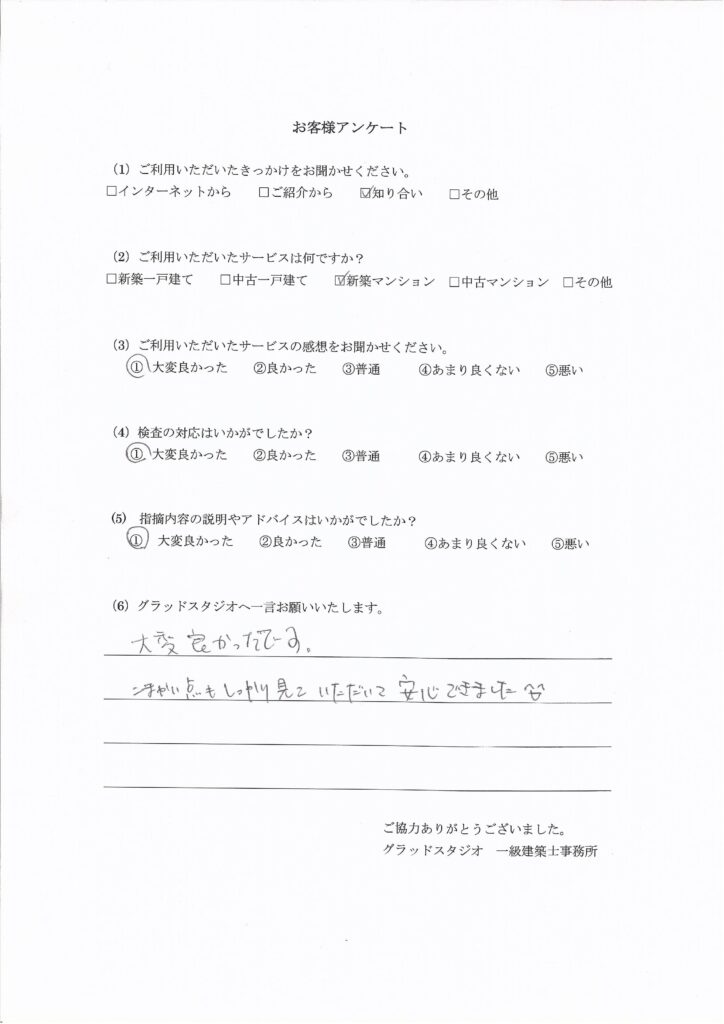 お客様アンケート
(1) ご利用いただいたきっかけをお聞かせください。
□インターネットから □ご紹介から ☑知り合い □その他
(2) ご利用いただいたサービスは何ですか？
□新築一戸建て □中古一戸建て ☑新築マンション □中古マンション □その他
(3) ご利用いただいたサービスの感想をお聞かせください。
①大変良かった ②良かった ③普通 ④あまり良くない ⑤悪い
(4) 検査の対応はいかがでしたか？
①大変良かった ②良かった ③普通 ④あまり良くない ⑤悪い
(5) 指摘内容の説明やアドバイスはいかがでしたか？
① 大変良かった ②良かった ③普通 ④あまり良くない ⑤悪い
(6) グラッドスタジオへ一言お願いいたします。
大変良かったでーす。
こまかい点もしっかり見ていただいて安心できました
ご協力ありがとうございました。
グラッドスタジオ 一級建築士事務所